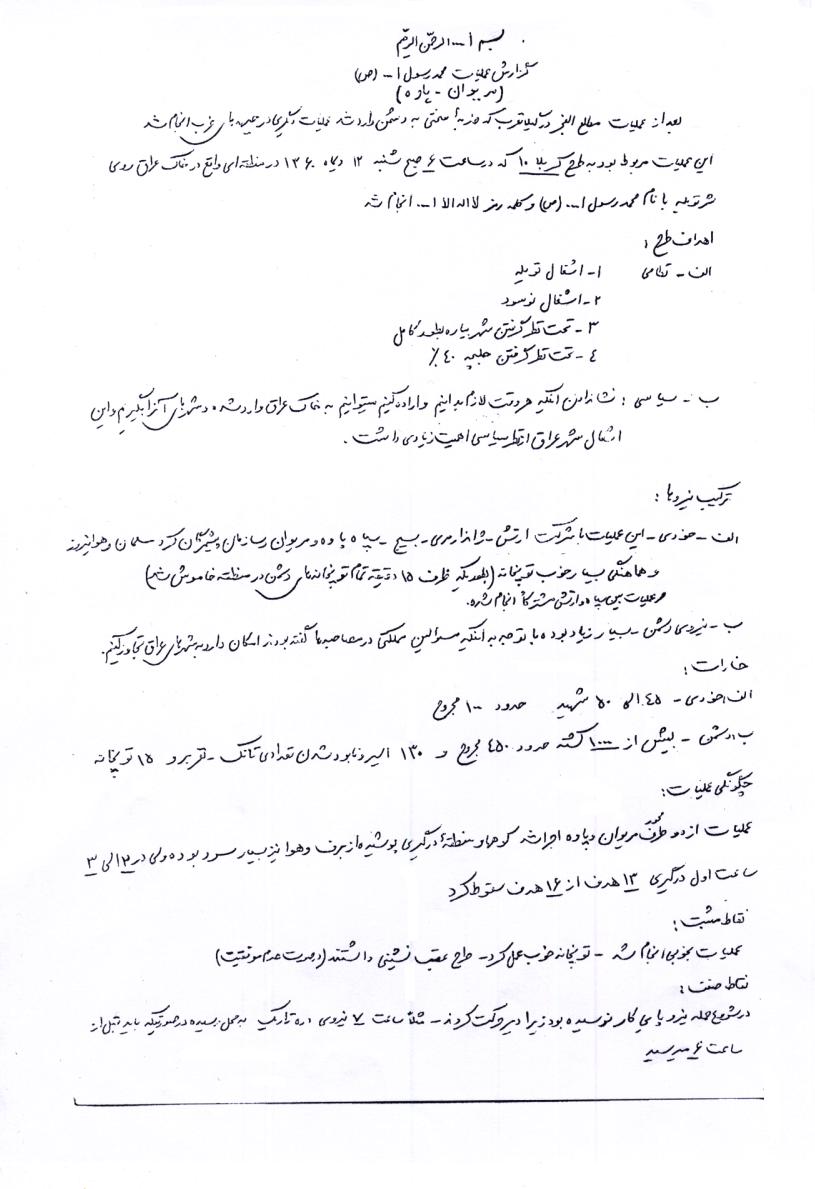 بسم ا... الرحمن الرحیم
گزارش عملیات محمد رسول ا... (ص)
(مریوان - پاوه)
بعد از عملیات مطلع الفجر در گیلانغرب که ضربهٔ سختی به دشمن وارد شد عملیات دیگری در جبهه‌های غرب انجام شد
این عملیات مربوط بود به طرح کربلا ۱۰ که در ساعت ۶ صبح شنبه ۱۲ دیماه ۱۳۶۰ در منطقه‌ای واقع در خاک عراق روی
شهر طویله با نام محمد رسول ا... (ص) و کلمه رمز لا اله الا ا... انجام شد
اهداف طرح :
الف - نظامی ۱- اشغال طویله
۲- اشغال نوسود
۳- تحت نظر گرفتن شهر بیاره بطور کامل
۴- تحت نظر گرفتن حلبچه ۴۰٪
ب - سیاسی : نشاندادن اینکه هر وقت لازم بدانیم و اراده کنیم میتوانیم به خاک عراق وارد شده و شهرهای آنرا بگیریم و این
اشغال شهر عراق از نظر سیاسی اهمیت زیادی داشت .
ترکیب نیروها :
الف - خودی - این عملیات با شرکت ارتش - ژاندارمری - بسیج - سپاه پاوه و مریوان و سازمان پیشمرگان کرد مسلمان و هوانیروز
و هماهنگی بسیار خوب توپخانه (بطوریکه ظرف ۱۵ دقیقه تمام توپخانه‌های دشمن در منطقه خاموش شد)
و عملیات بین سپاه و ارتش مشترکاً انجام شده.
ب - نیروی دشمن - بسیار زیاد بوده با توجه به اینکه مسئولین مملکتی در مصاحبه‌ها گفته بودند امکان دارد به شهرهای عراق تجاوز کنیم.
خسارات :
الف: خودی - ۴۵ الی ۵۰ شهید حدود ۱۰۰ مجروح
ب: دشمن - بیش از ۱۰۰۰ کشته حدود ۴۵۰ مجروح و ۱۳۰ اسیر و نابود شدن تعدادی تانک - نفربر و ۱۵ توپخانه
چگونگی عملیات :
عملیات از دو طرف محور مریوان و پاوه اجرا شد کوهها و منطقهٔ درگیری پوشیده از برف و هوا نیز بسیار سرد بوده ولی در ۲ الی ۳
ساعت اول درگیری ۱۳ هدف از ۱۶ هدف سقوط کرد
نقاط مثبت :
عملیات بخوبی انجام شد - توپخانه خوب عمل کرد - طرح عقب نشینی داشتند (در صورت عدم موفقیت)
نقاط ضعف :
در شروع حمله نیرو پای کار نرسیده بود زیرا دیر حرکت کردند - مثلاً ساعت ۷ نیروی به محل رسیده در صورتیکه باید قبل از
ساعت ۶ میرسید